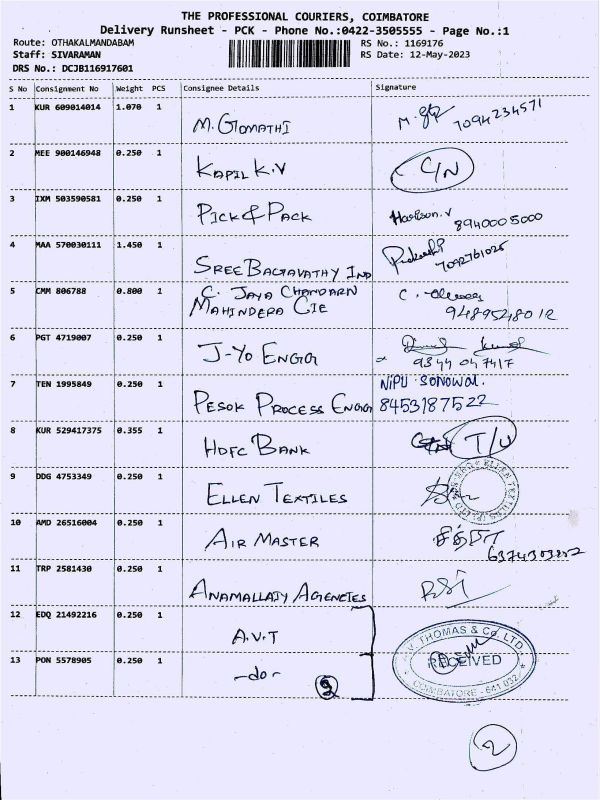 THE PROFESSIONAL COURIERS, COIMBATORE
Delivery Runsheet - PCK - Phone No.:0422-3505555 - Page No.:1
Route: OTHAKALMANDABAM RS No.: 1169176
Staff: SIVARAMAN RS Date: 12-May-2023
DRS No.: DCJB116917601
S No Consignment No Weight PCS Consignee Details Signature
1 KUR 609014014 1.070 1 M. GOMATHI 7094234571
2 MEE 900146948 0.250 1 KAPIL K.V C/N
3 IXM 503590581 0.250 1 PICK & PACK Harison.V
8940005000
4 MAA 570030111 1.450 1 SREE BAGAVATHY IND
7092761025
5 CMM 806788 0.800 1 C. JAYA CHANDARN
MAHINDERA CIE 9489548012
6 PGT 4719007 0.250 1 J-YO ENGG
9344 047417
7 TEN 1995849 0.250 1 PESOK PROCESS ENGG NIPU SONOWAL.
8453187522
8 KUR 529417375 0.355 1 HDFC BANK T/U
9 DDG 4753349 0.250 1 ELLEN TEXTILES
ELLEN TEXTILES (P) LTD
10 AMD 26516004 0.250 1 AIR MASTER
11 TRP 2581430 0.250 1 ANAMALLAIY AGENCIES
12 EDQ 21492216 0.250 1 A.V.T
13 PON 5578905 0.250 1 -do-
A.V. THOMAS & Co. LTD.
RECEIVED
COIMBATORE - 641 032
2